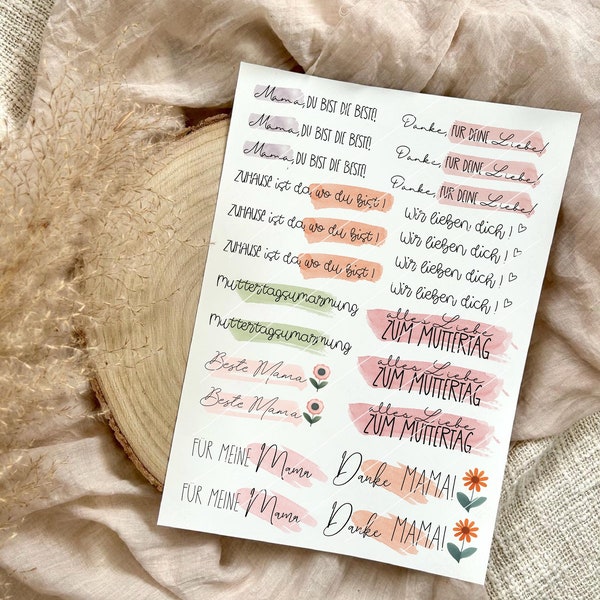 Mama, DU BIST DIE BESTE!
Mama, DU BIST DIE BESTE!
Mama, DU BIST DIE BESTE!
ZUHAUSE ist da, wo du bist!
ZUHAUSE ist da, wo du bist!
ZUHAUSE ist da, wo du bist!
Muttertagsumarmung
Muttertagsumarmung
Beste Mama
Beste Mama
FÜR MEINE Mama
FÜR MEINE Mama
Danke, FÜR DEINE Liebe!
Danke, FÜR DEINE Liebe!
Danke, FÜR DEINE Liebe!
Wir lieben dich!
Wir lieben dich!
Wir lieben dich!
Wir lieben dich!
alles Liebe
ZUM MUTTERTAG
alles Liebe
ZUM MUTTERTAG
alles Liebe
ZUM MUTTERTAG
Danke MAMA!
Danke MAMA!